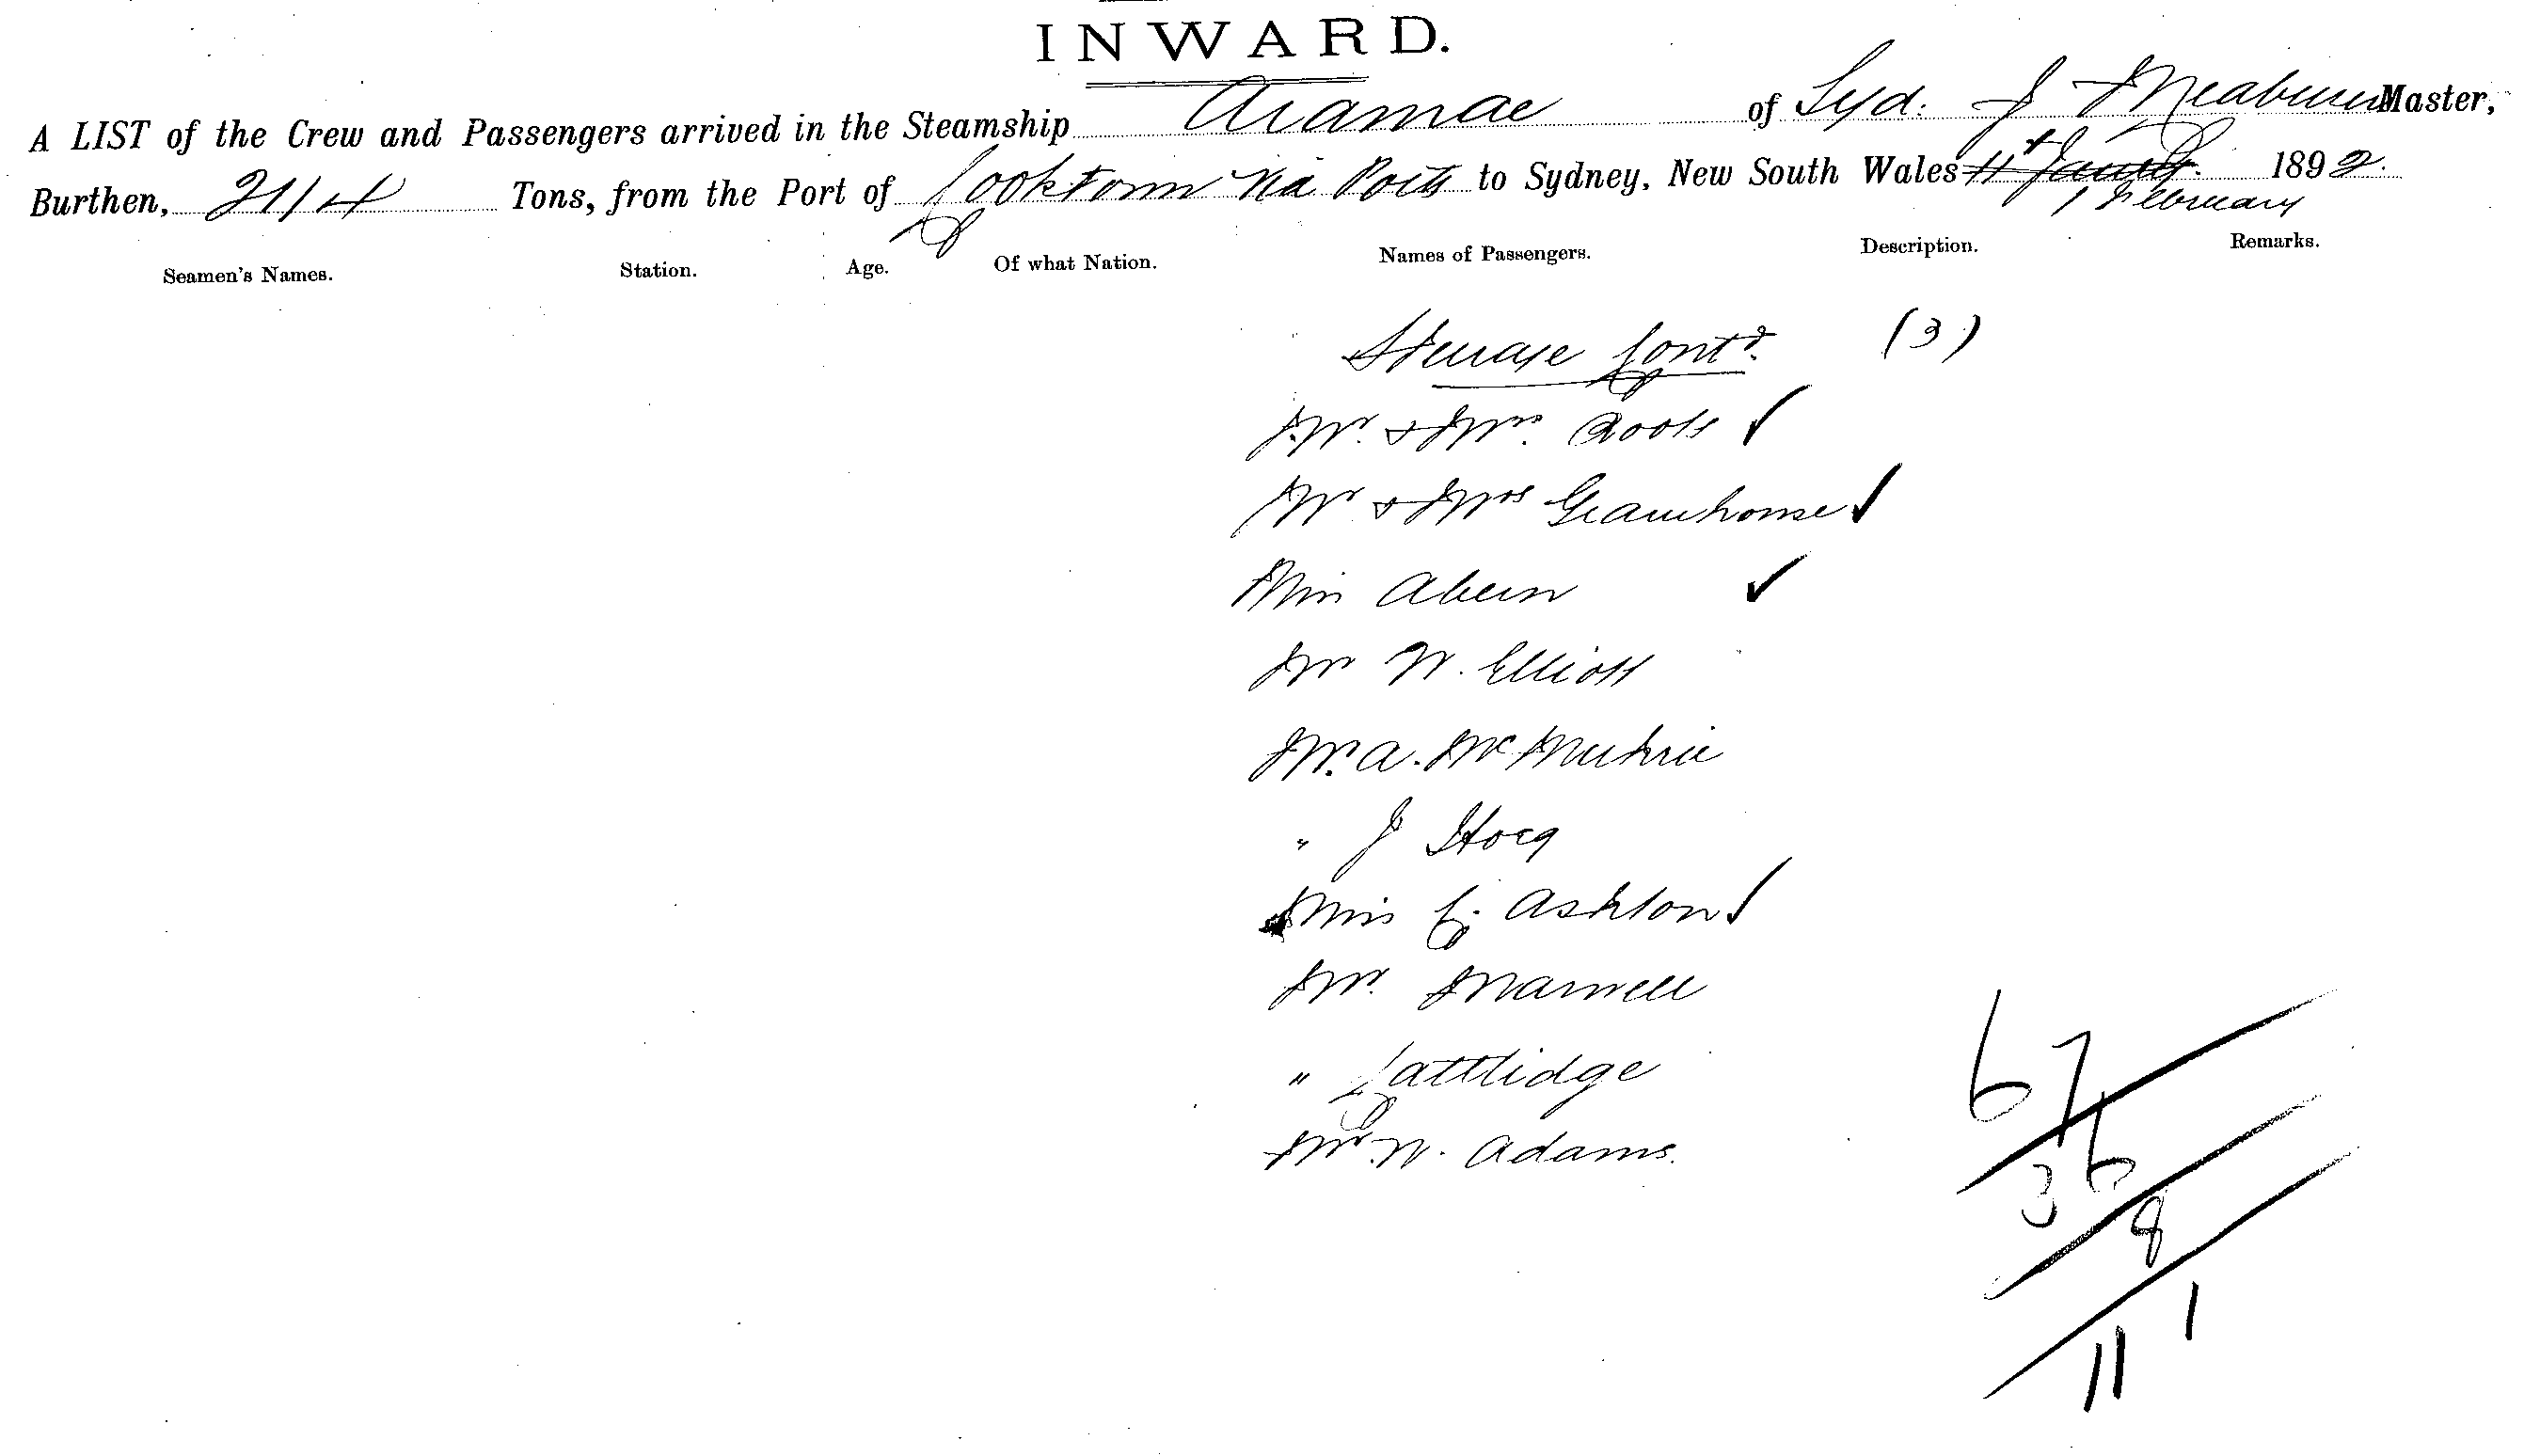 INWARD.
A LIST of the Crew and Passengers arrived in the Steamship Aramac of Syd. J Meaburn Master,
Burthen, 2114 Tons, from the Port of Cooktown via Ports to Sydney, New South Wales 11th Jany 1892.
1 February
Seamen's Names. Station. Age. Of what Nation. Names of Passengers. Description. Remarks.
Steerage Contd. (3)
Mr. & Mrs. Roots ✓
Mr & Mrs ✓
Miss Ahern ✓
Mr W. Elliott
Mr. A. McMurtrie
" J Hogg
Miss C. Ashton ✓
Mr. Marwell
" Cattlidge
Mr W. Adams.
67
36
8
1
11